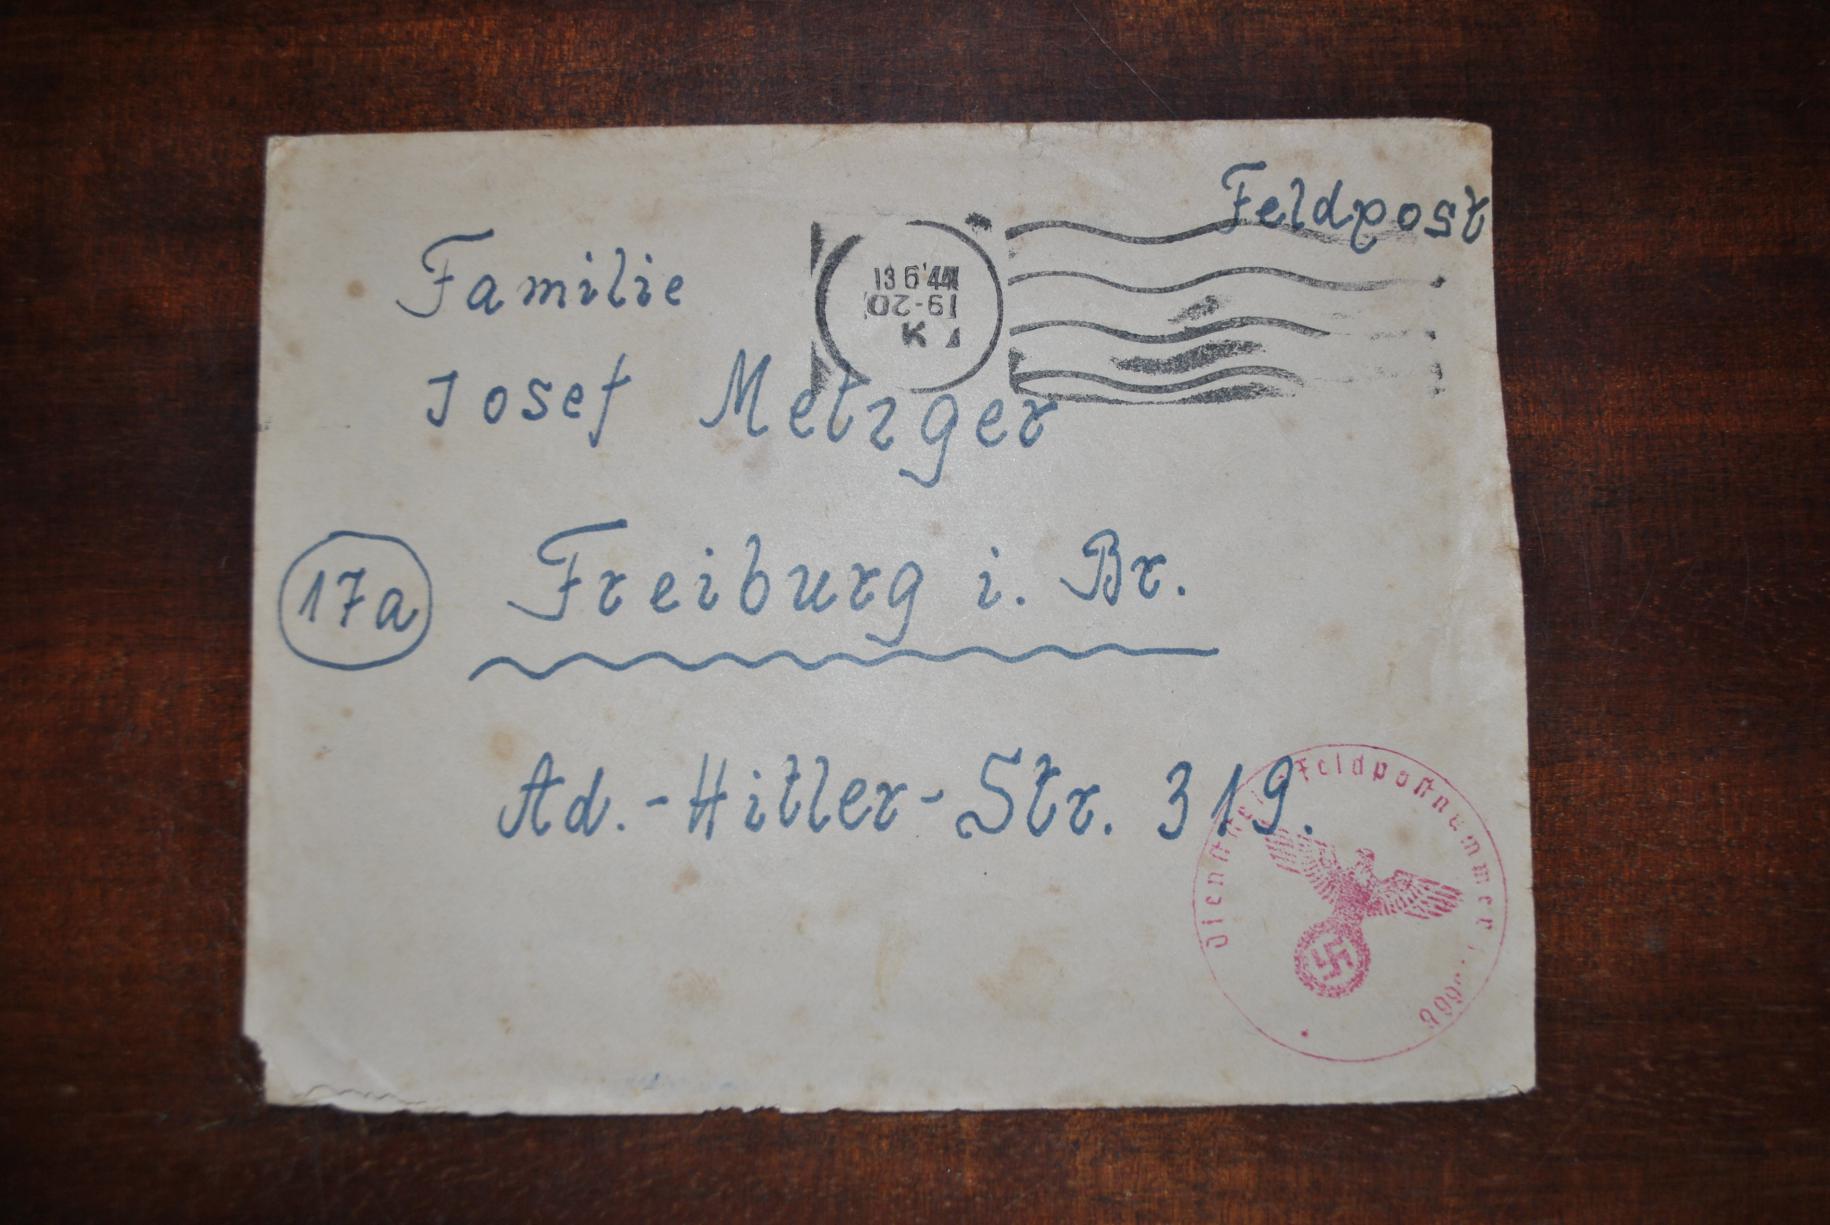 Feldpost
13 6.44
19-20
K
Familie
Josef Metzger
17a
Freiburg i. Br.
Ad.-Hitler-Str. 319.
Feldpostnummer